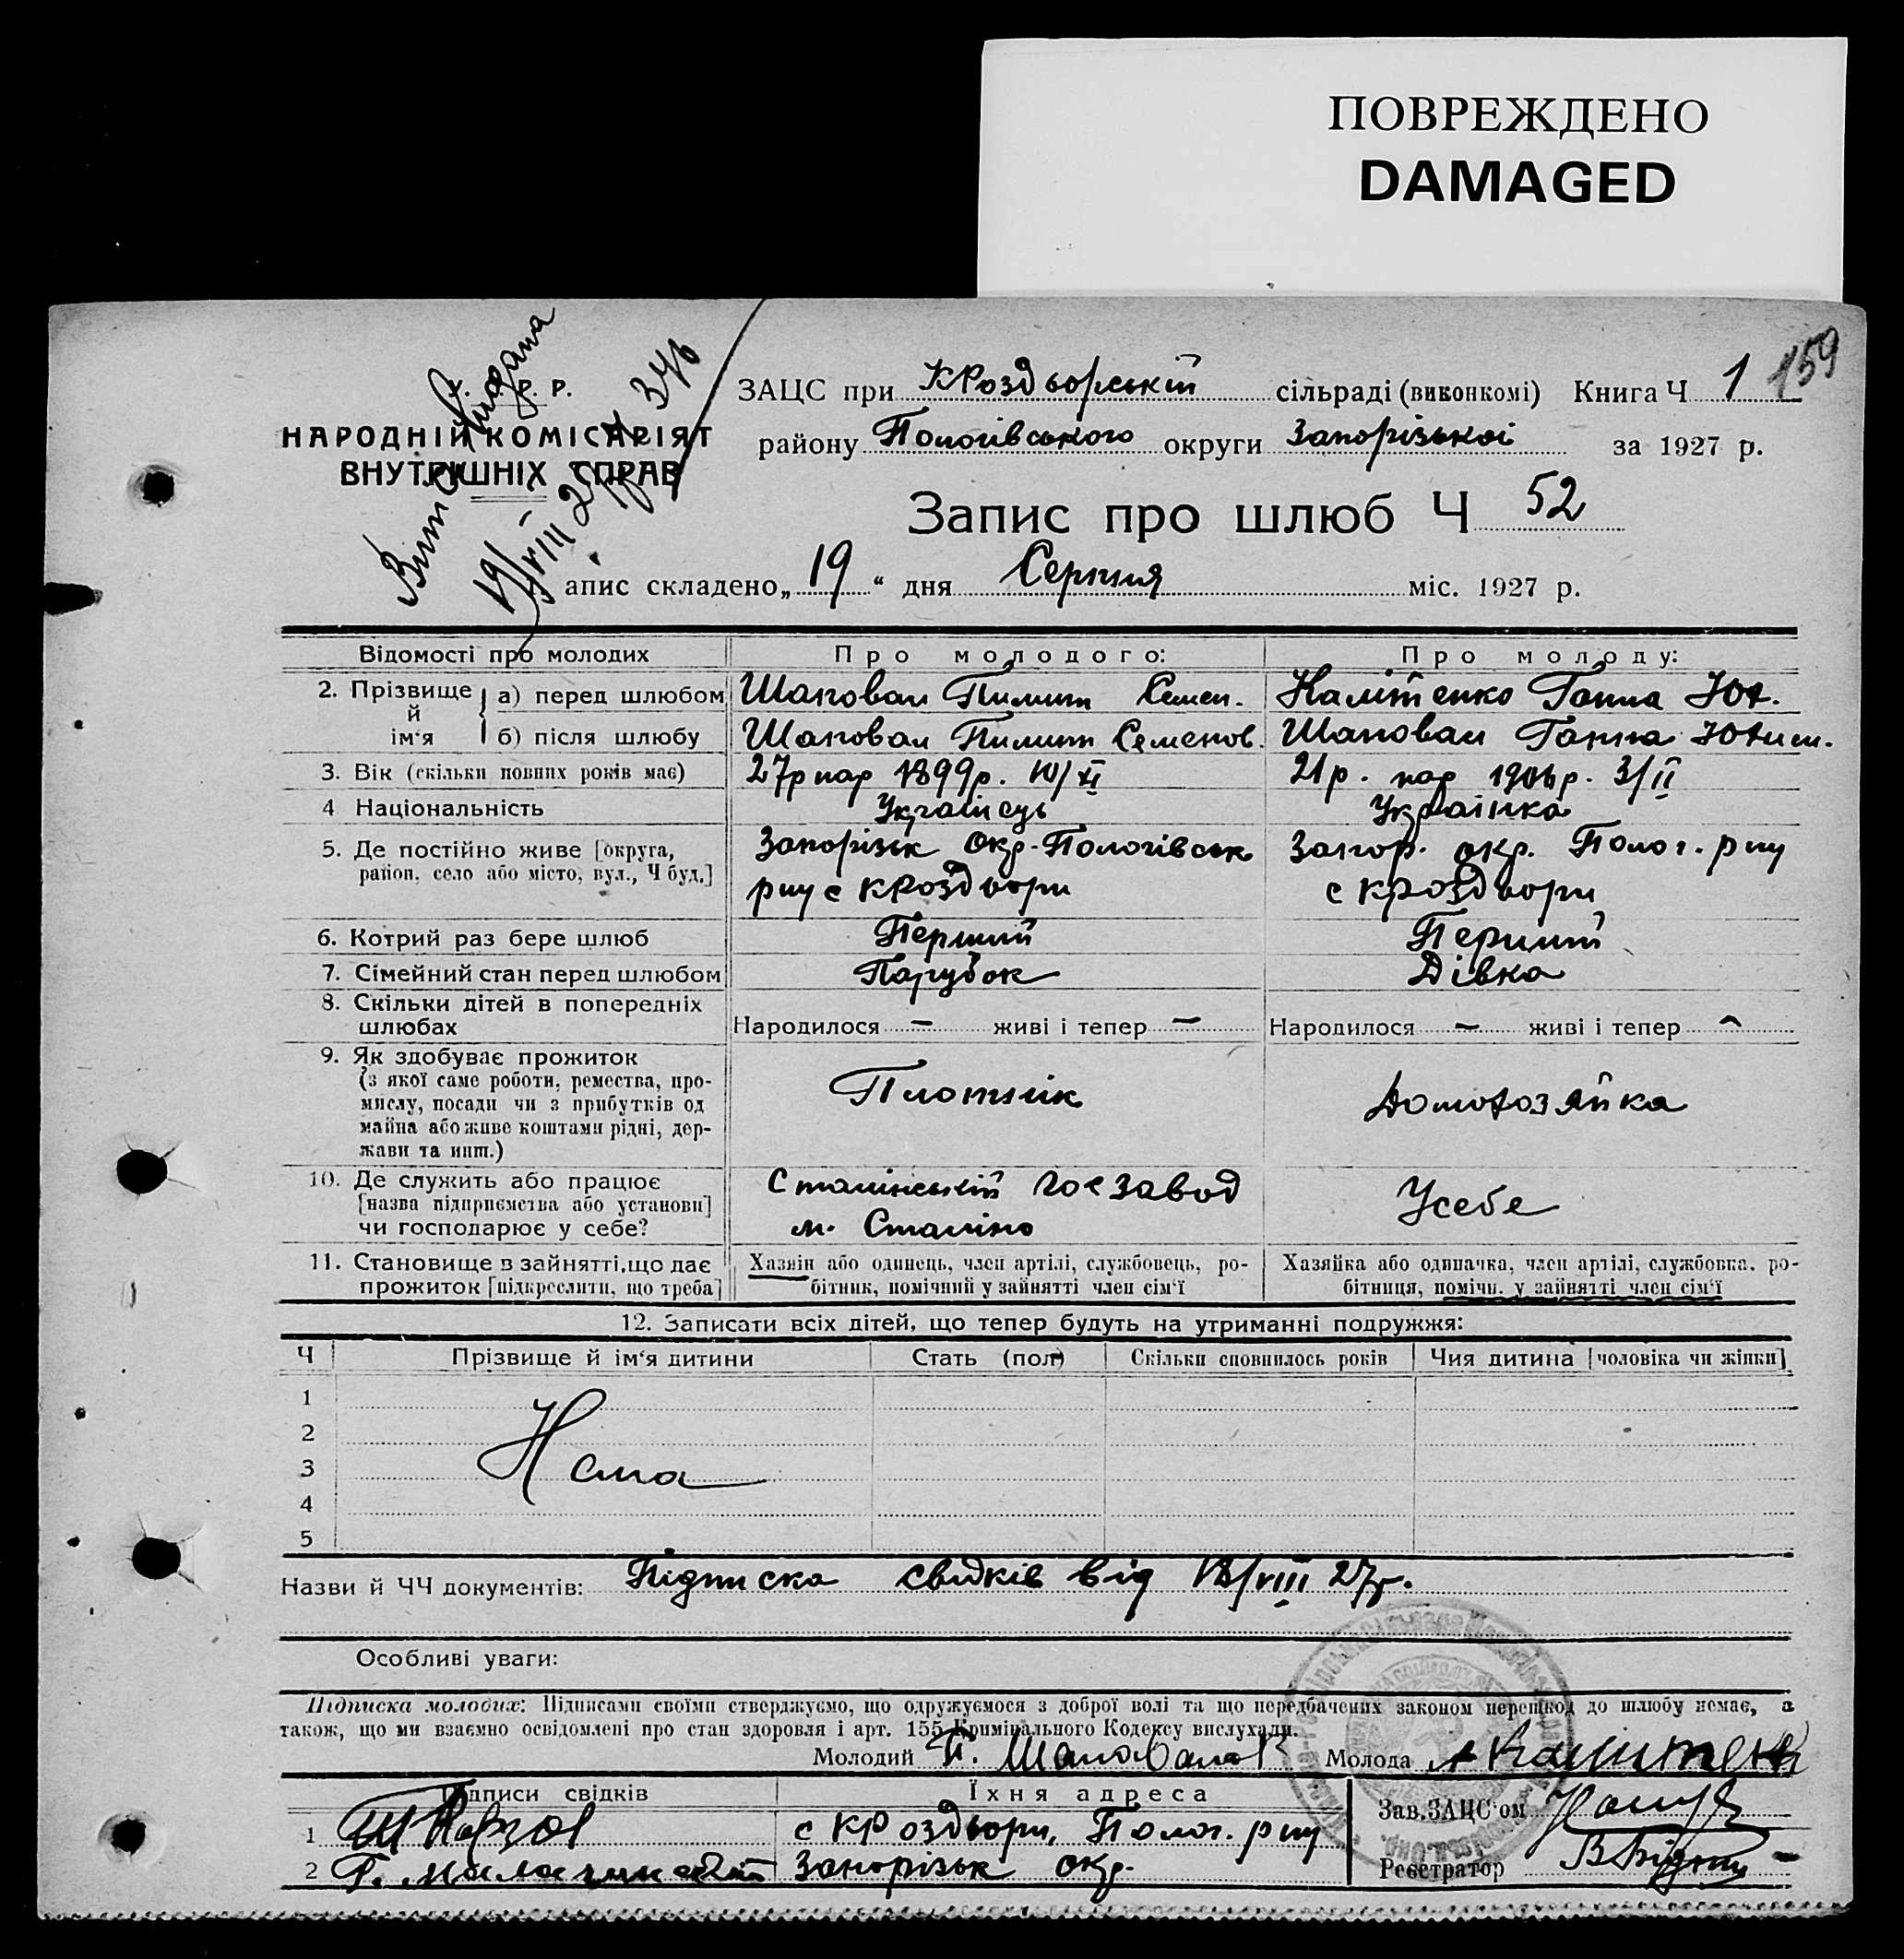 ПОВРЕЖДЕНО
DAMAGED
159
У. Р. Р.
НАРОДНІЙ КОМІСАРІЯТ
ВНУТРІШНІХ СПРАВ
ЗАЦС при КРоздорській сільраді (виконкомі) Книга Ч 1
району Пологівського округи Запорізькоі за 1927 р.
Запис про шлюб Ч 52
апис складено „19“ дня Серпня міс. 1927 р.
Відомості про молодих Про молодого: Про молоду:
2. Прізвище й ім‘я а) перед шлюбом Шаповал Пилип Семен. Калітенко Ганна Юх.
б) після шлюбу Шаповал Пилип Семенов. Шаповал Ганна Юхим.
3. Вік (скільки повних років має) 27р нар 1899р. 10/XI 21р. нар 1906р. 3/II
4 Національність Украінець Украінка
5. Де постійно живе [округа, Запорізьк Окр. Пологівськ Запор. окр. Полог. р ну
район, село або місто, вул., Ч буд.] рну с КРоздори с КРоздори
6. Котрий раз бере шлюб Перший Перший
7. Сімейний стан перед шлюбом Парубок Дівка
8. Скільки дітей в попередніх
шлюбах Народилося — живі і тепер — Народилося — живі і тепер —
9. Як здобуває прожиток
(з якої саме роботи, ремества, про-
мислу, посади чи з прибутків од Плотнік Домохозяйка
майна або живе коштами рідні, дер-
жави та инш.)
10. Де служить або працює Сталінський Госзавод
[назва підприємства або установи] Усебе
чи господарює у себе? м. Сталіно
11. Становище в зайнятті, що дає Хазяін або одинець, член артілі, службовець, ро- Хазяйка або одиначка, член артілі, службовка, ро-
прожиток [підкреслити, що треба] бітник, помічний у зайнятті член сім‘ї бітниця, помічн. у зайнятті член сім‘ї
12. Записати всіх дітей, що тепер будуть на утриманні подружжя:
Ч Прізвище й ім‘я дитини Стать (пол) Скільки сповнилось років Чия дитина [чоловіка чи жінки]
1
2
3 Нема
4
5
Назви й ЧЧ документів: Підписка свідків від /VIII 27р.
Особливі уваги:
Підписка молодих: Підписами своїми стверджуємо, що одружуємося з доброї волі та що передбачених законом перешкод до шлюбу немає, а
також, що ми взаємно освідомлені про стан здоровля і арт. 155 Кримінального Кодексу вислухали.
Молодий П. Шаповалов Молода А Калітенк
Підписи свідків Їхня адреса Зав. ЗАЦС‘ом
1 с КРоздори, Полог. р ну
2 Г. Запорізьк окр. Реєстратор